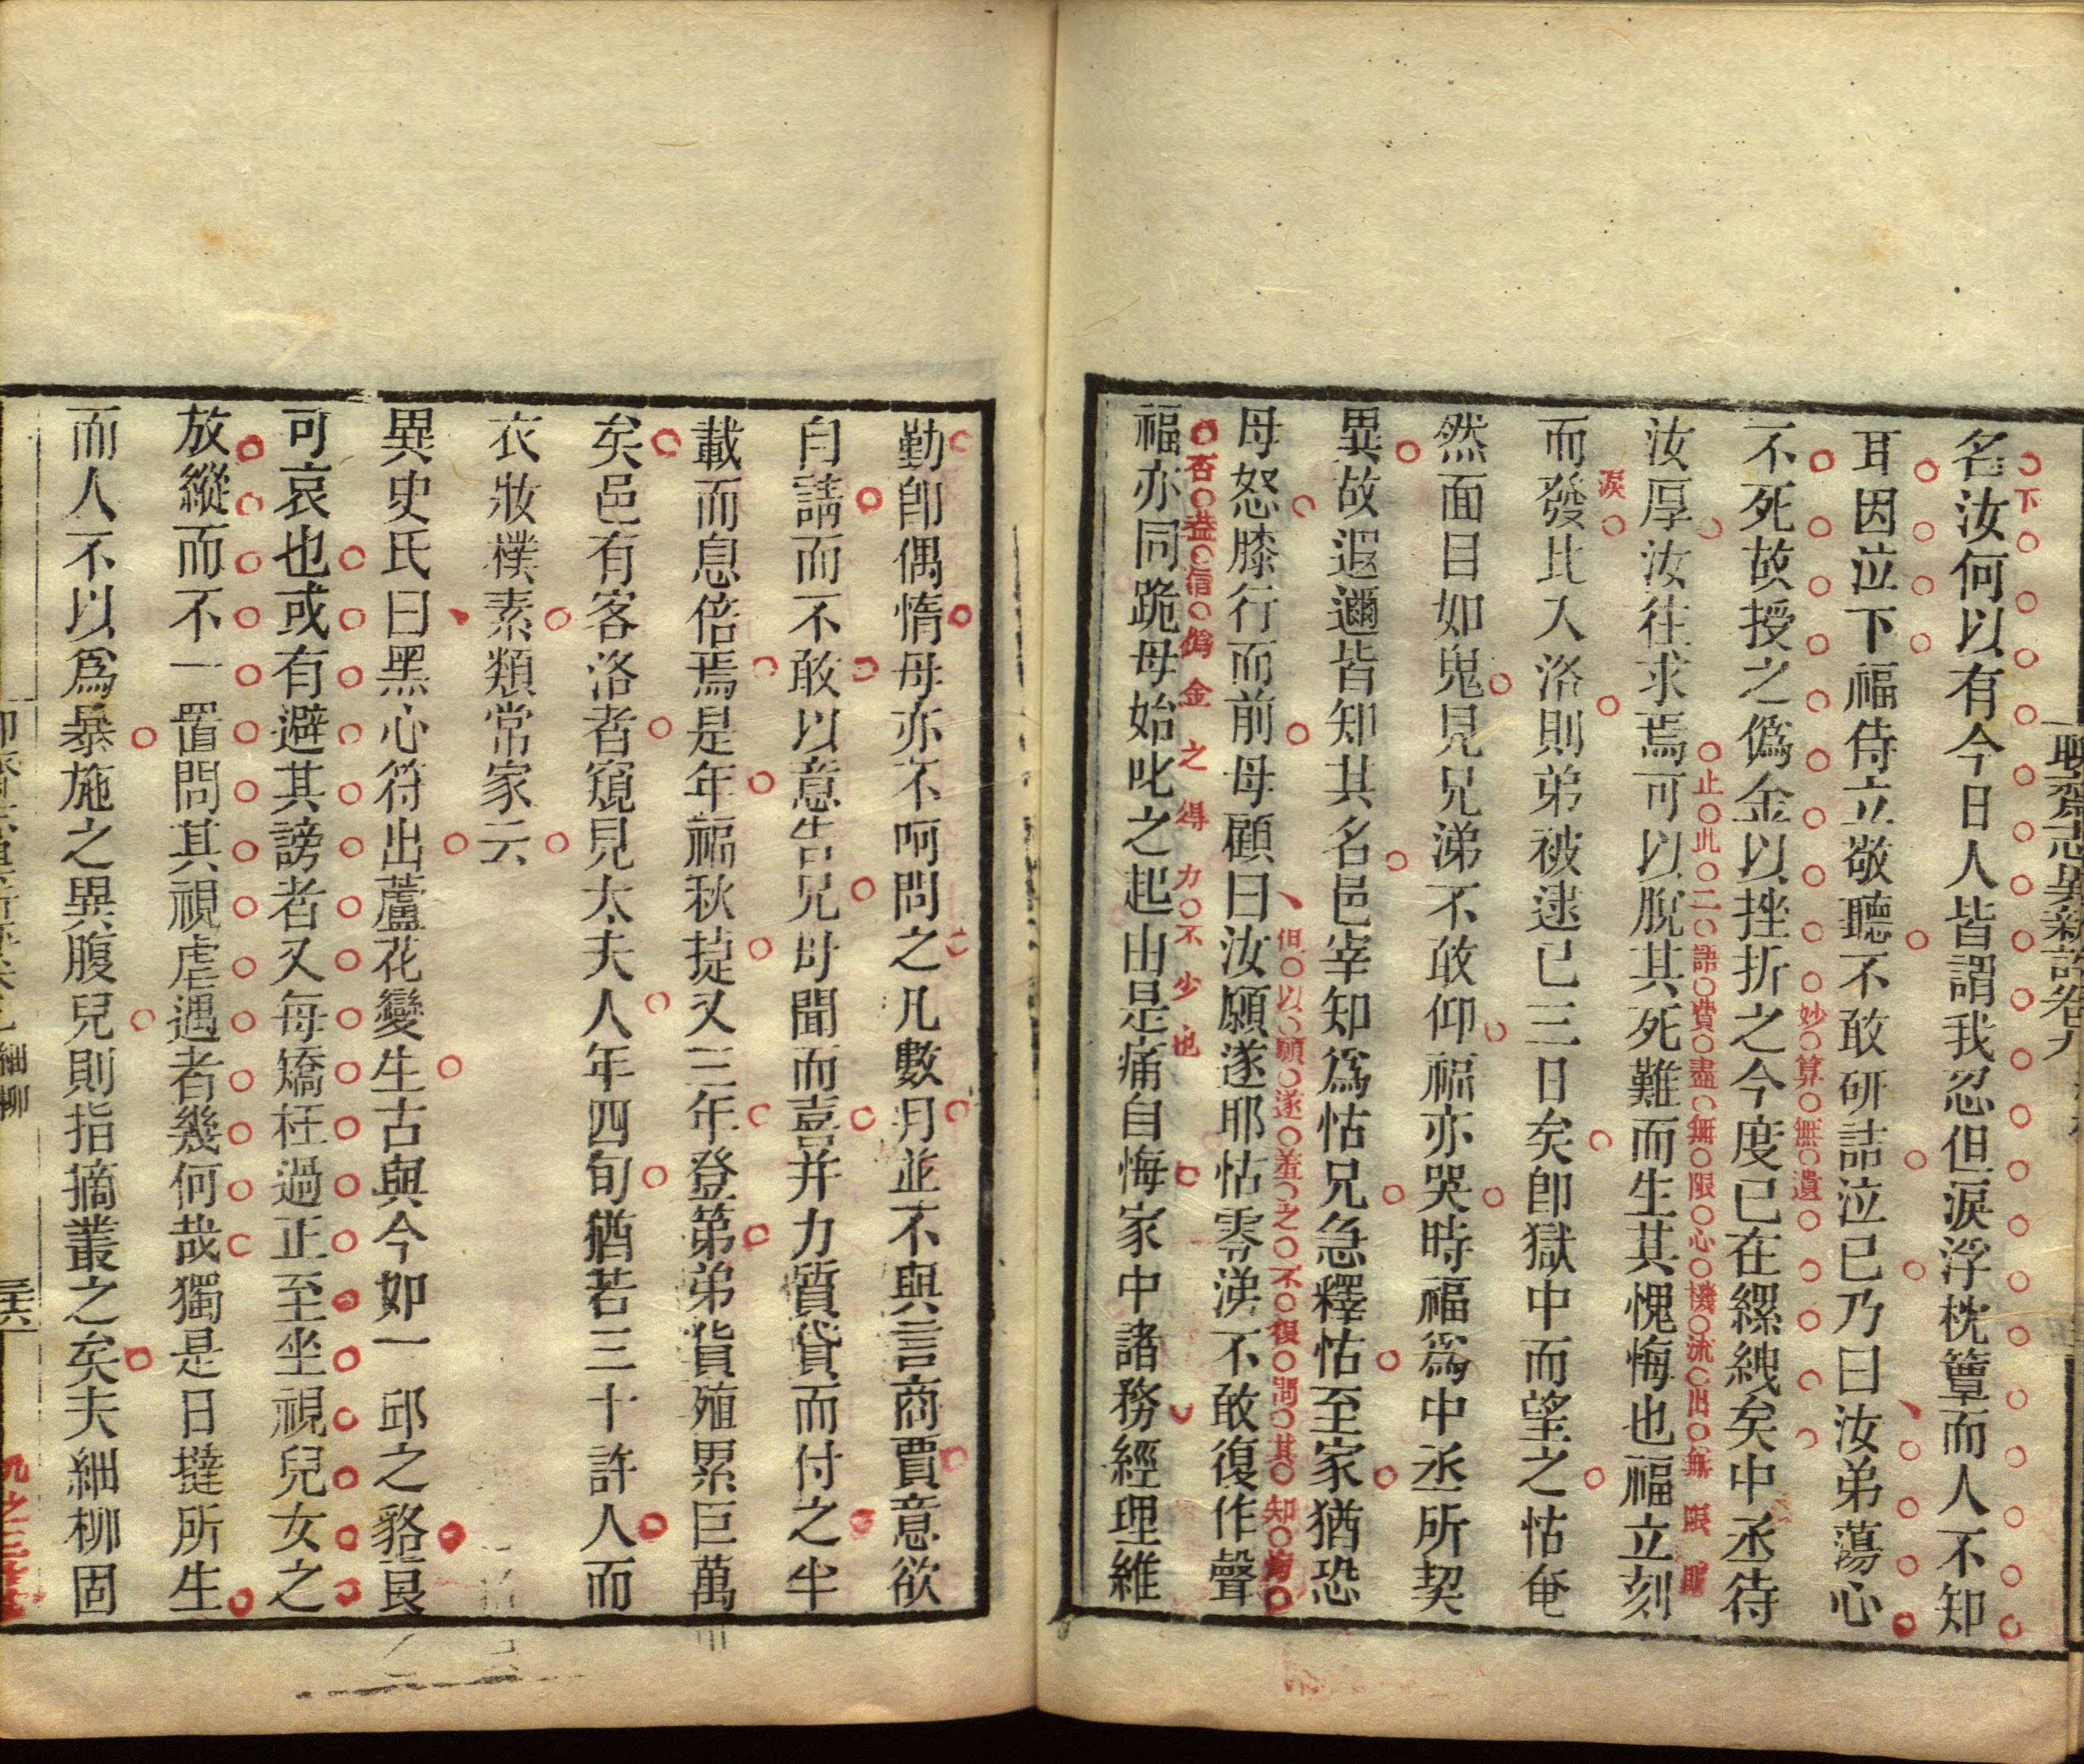 聊齋志異新評卷九
名汝何以有今日人皆謂我忍但淚浮枕簟而人不知
下
耳因泣下福侍立敬聽不敢研詰泣已乃曰汝弟蕩心
不死故授之僞金以挫折之今度已在縲絏矣中丞待
妙算無遺
汝厚汝往求焉可以脫其死難而生其愧悔也福立刻
止此二語費盡無限心機流出無限
淚
而發比入洛則弟被逮已三日矣卽獄中而望之怙奄
然面目如鬼見兄涕不敢仰福亦哭時福爲中丞所契
異故遐邇皆知其名邑宰知爲怙兄急釋怙至家猶恐
母怒膝行而前母顧曰汝願遂耶怙零涕不敢復作聲
但以願遂羞之不復問其知
福亦同跪母始叱之起由是痛自悔家中諸務經理維
否益信僞金之得力不少也
勤卽偶惰母亦不呵問之凡數月並不與言商賈意欲
自請而不敢以意告兄母聞而喜并力質貸而付之半
載而息倍焉是年福秋捷又三年登第弟貨殖累巨萬
矣邑有客洛者窺見太夫人年四旬猶若三十許人而
衣妝樸素類常家云
異史氏曰黑心符出蘆花變生古與今如一邱之貉良
可哀也或有避其謗者又每矯枉過正至坐視兒女之
放縱而不一置問其視虐遇者幾何哉獨是日撻所生
而人不以爲暴施之異腹兒則指摘叢之矣夫細柳固
細柳
三六